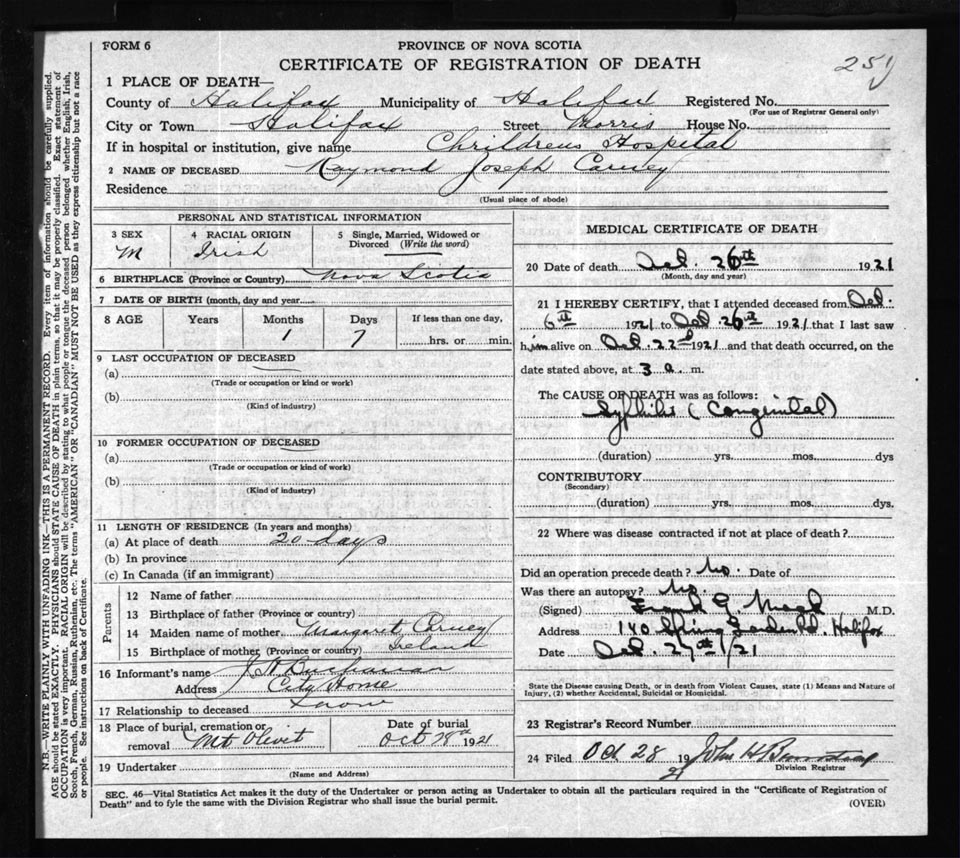 FORM 6
PROVINCE OF NOVA SCOTIA
CERTIFICATE OF REGISTRATION OF DEATH
1 PLACE OF DEATH—
County of Halifax Municipality of Halifax Registered No.
(For use of Registrar General only)
City or Town Halifax Street Morris House No.
If in hospital or institution, give name Chrildrens Hospital
2 NAME OF DECEASED Raymond Joseph Carney
Residence
(Usual place of abode)
PERSONAL AND STATISTICAL INFORMATION
3 SEX M
4 RACIAL ORIGIN Irish
5 Single, Married, Widowed or Divorced (Write the word)
6 BIRTHPLACE (Province or Country) Nova Scotia
7 DATE OF BIRTH (month, day and year
8 AGE Years Months Days If less than one day,
1 7 hrs. or min.
9 LAST OCCUPATION OF DECEASED
(a)
(Trade or occupation or kind or work)
(b)
(Kind of industry)
10 FORMER OCCUPATION OF DECEASED
(a)
(Trade or occupation or kind of work)
(b)
(Kind of industry)
11 LENGTH OF RESIDENCE (In years and months)
(a) At place of death 20 days
(b) In province
(c) In Canada (if an immigrant)
Parents
12 Name of father
13 Birthplace of father (Province or country)
14 Maiden name of mother Margaret Carney
15 Birthplace of mother (Province or country) Ireland
16 Informant's name Buchanan
Address City Home
17 Relationship to deceased
18 Place of burial, cremation or removal Mt Olivet
Date of burial Oct 28th 1921
19 Undertaker
(Name and Address)
MEDICAL CERTIFICATE OF DEATH
20 Date of death Oct. 26th 1921
(Month, day and year)
21 I HEREBY CERTIFY, that I attended deceased from Oct.
6th 1921 to Oct 26th 1921 that I last saw
him alive on Oct. 22nd 1921 and that death occurred, on the
date stated above, at 3 a. m.
The CAUSE OF DEATH was as follows:
Syphilis (Congenital)
(duration) yrs. mos. dys
CONTRIBUTORY
(Secondary)
(duration) yrs. mos. dys.
22 Where was disease contracted if not at place of death?
Did an operation precede death? No. Date of
Was there an autopsy? No.
(Signed) Frank G. M.D.
Address 140 Spring Garden Rd. Halifax
Date Oct. 27th/21
State the Disease causing Death, or in death from Violent Causes, state (1) Means and Nature of
Injury, (2) whether Accidental, Suicidal or Homicidal.
23 Registrar's Record Number
24 Filed Oct 28 19 21 John H
Division Registrar
SEC. 46—Vital Statistics Act makes it the duty of the Undertaker or person acting as Undertaker to obtain all the particulars required in the "Certificate of Registration of
Death" and to fyle the same with the Division Registrar who shall issue the burial permit.
(OVER)
N.B.—WRITE PLAINLY WITH UNFADING INK—THIS IS A PERMANENT RECORD. Every item of information should be carefully supplied.
AGE should be stated EXACTLY. PHYSICIANS should STATE CAUSE OF DEATH in plain terms, so that it may be properly classified. Exact statement of
OCCUPATION is very important. RACIAL ORIGIN will be described by stating to what people or tongue the deceased person belonged whether English, Irish,
Scotch, French, German, Russian, Ruthenian, etc. The terms "AMERICAN" OR "CANADIAN" MUST NOT BE USED as they express citizenship but not a race
or people. See instructions on back of Certificate.